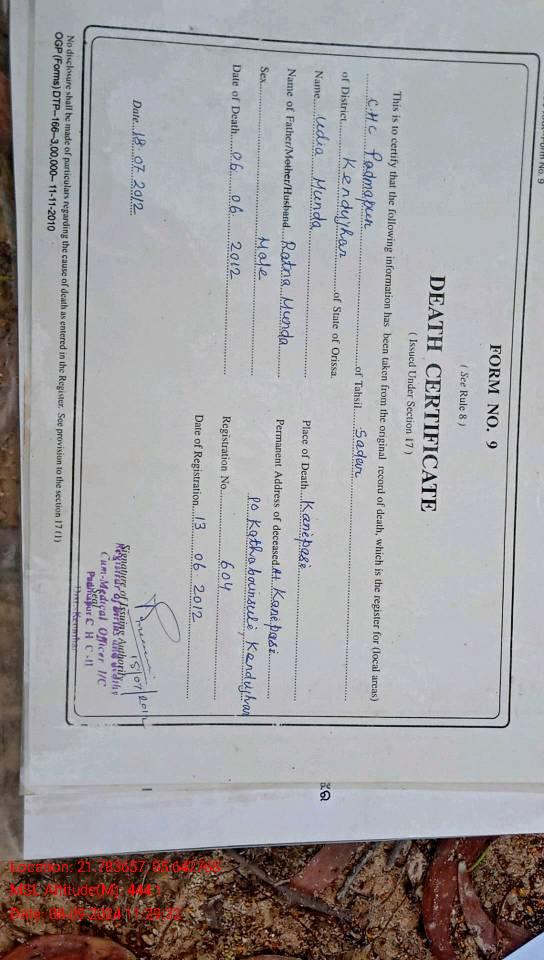 FORM NO. 9
( See Rule 8 )
DEATH CERTIFICATE
( Issued Under Section 17 )
This is to certify that the following information has been taken from the original record of death, which is the register for (local areas)
C.H.C Padmapur of Tahsil Sadar
of District Kendujhar of State of Orissa.
Name Udia Munda Place of Death Kanepasi
Name of Father/Mother/Husband Ratna Munda Permanent Address of deceased At Kanepasi
PO Kendujhar
Sex Male
Registration No. 604
Date of Death 06. 06. 2012
Date of Registration 13 06. 2012
Date 18.07.2012
Signature of Issuing Authority
Registrar of Births and Deaths
Cum-Medical Officer I/C
Padmapur C H C-II
No disclosure shall be made of particulars regarding the cause of death as entered in the Register. See provision to the section 17 (1)
OGP (Forms) DTP—166—3,00,000— 11-11-2010
Location: 21.783657, 85.642766
MSL Altitude(M): 444.1
Date: 08.09.2024 11:29:32